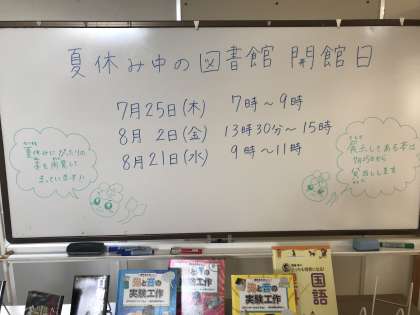 夏休み中の図書館 開館日
7月25日(木) 7時〜9時
8月 2日(金) 13時30分〜15時
8月21日(水) 9時〜11時
夏休みにぴったりの
本を用意して
まっています!!
展示してある本は
7月25日から
貸出しします
音の
実験工作
実験工作
国語